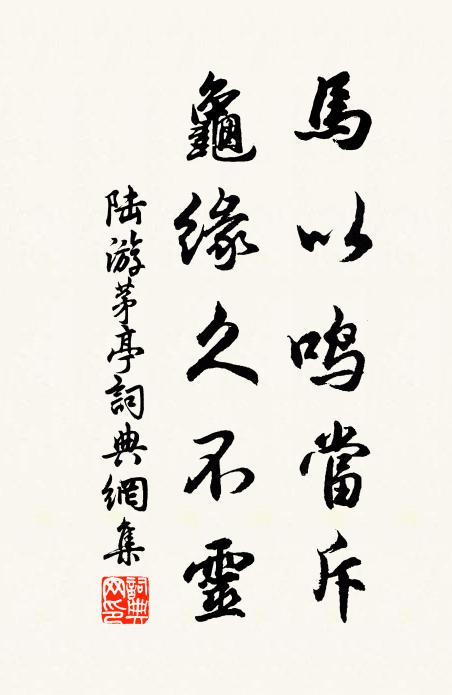 馬以鳴當斥
龜緣久不靈
陸游茅亭詞典網集
詞典網印